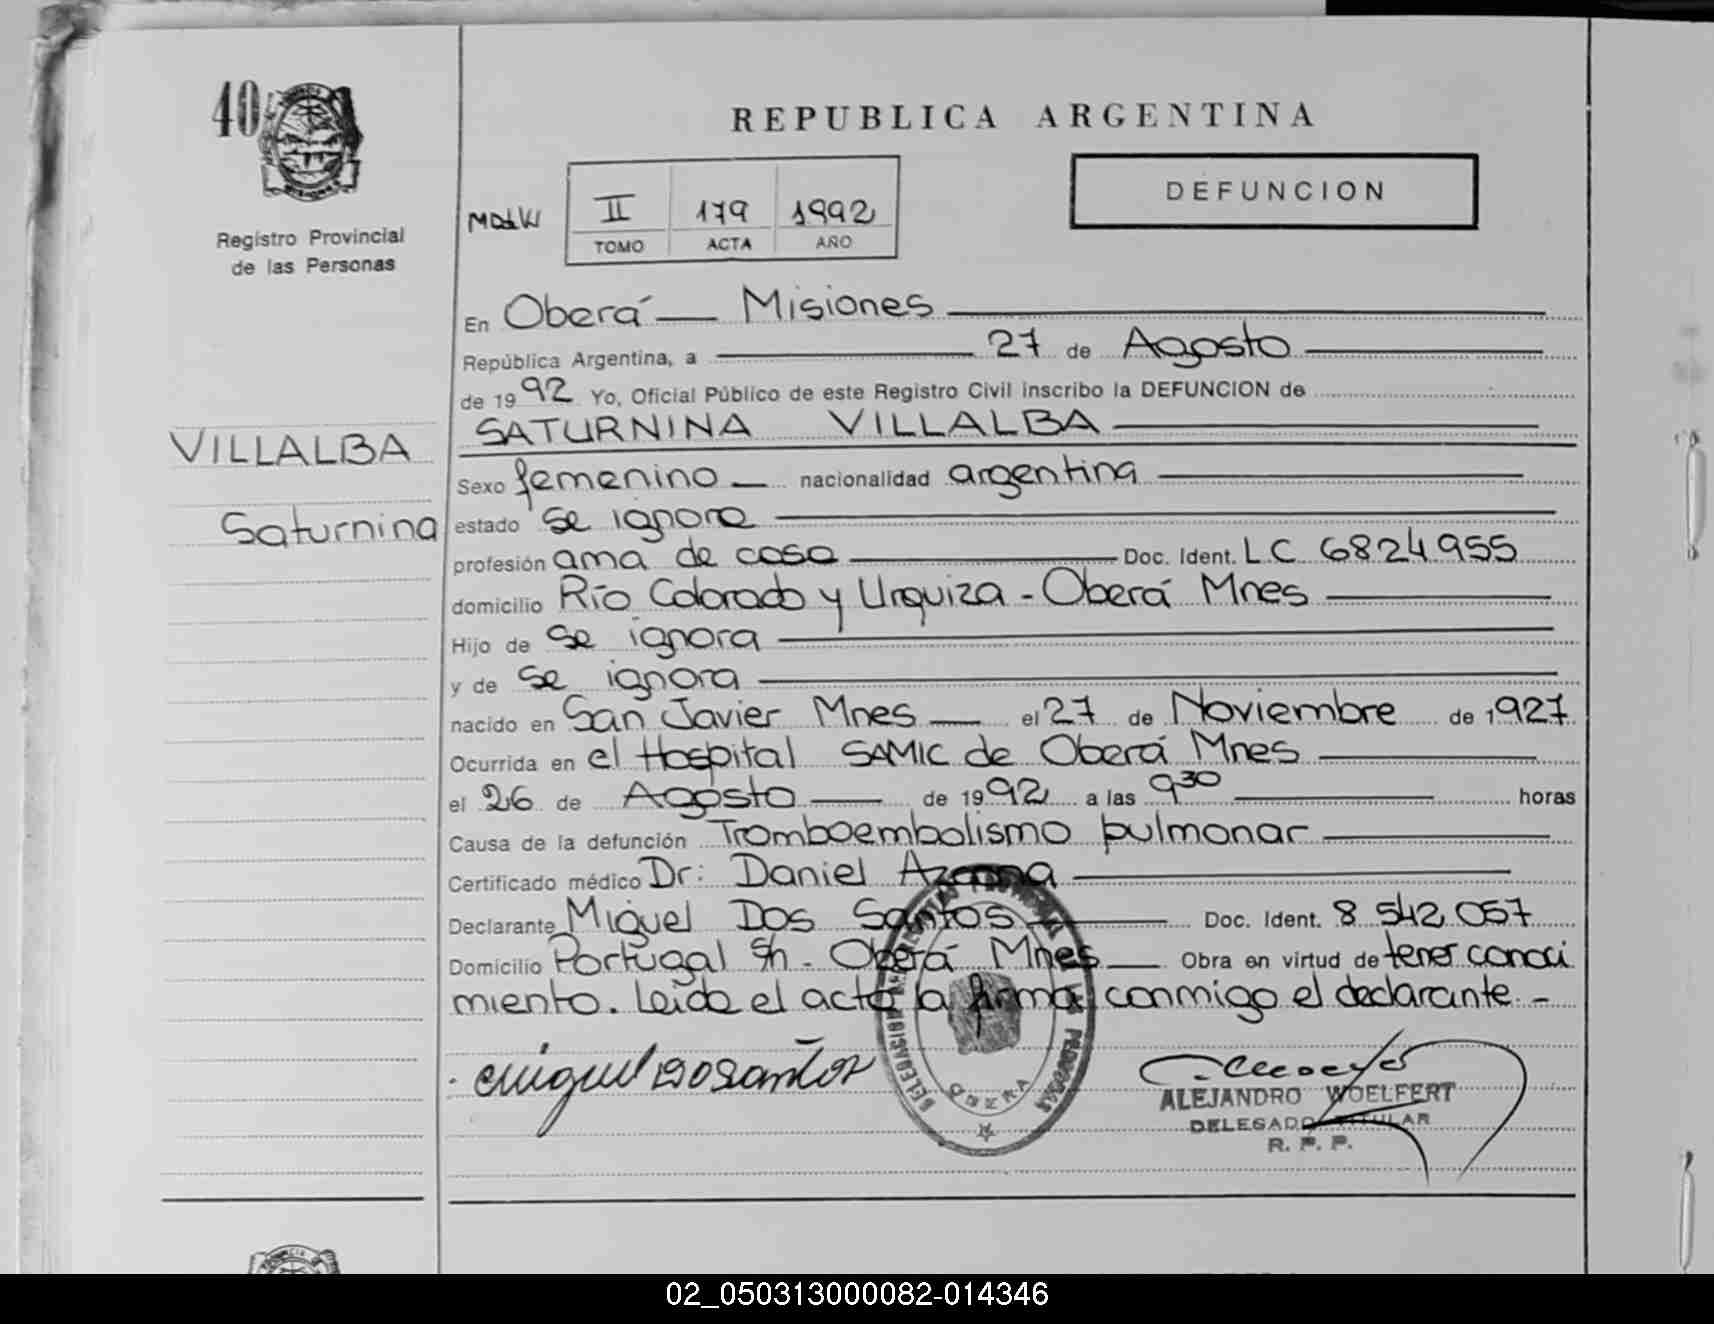 40
Registro Provincial
de las Personas
REPUBLICA ARGENTINA
DEFUNCION
II 179 1992
TOMO ACTA AÑO
En Oberá — Misiones
República Argentina, a 27 de Agosto
de 1992 Yo, Oficial Público de este Registro Civil inscribo la DEFUNCION de
SATURNINA VILLALBA
VILLALBA
Saturnina
Sexo femenino nacionalidad argentina
estado se ignora
profesión ama de casa Doc. Ident. LC 6824955
domicilio Río Colorado y Urquiza - Oberá Mnes
Hijo de se ignora
y de se ignora
nacido en San Javier Mnes el 27 de Noviembre de 1927
Ocurrida en el Hospital SAMIC de Oberá Mnes
el 26 de Agosto de 1992 a las 9 30 horas
Causa de la defunción Tromboembolismo pulmonar
Certificado médico Dr: Daniel
Declarante Miguel Dos Santos Doc. Ident. 8.542.057
Domicilio Portugal S/n. Oberá Mnes Obra en virtud de tener conoci
miento. Leída el acta la firma conmigo el declarante.-
Miguel Dos Santos
OBERA
ALEJANDRO WOELFERT
DELEGADO TITULAR
R. P. P.
02_050313000082-014346